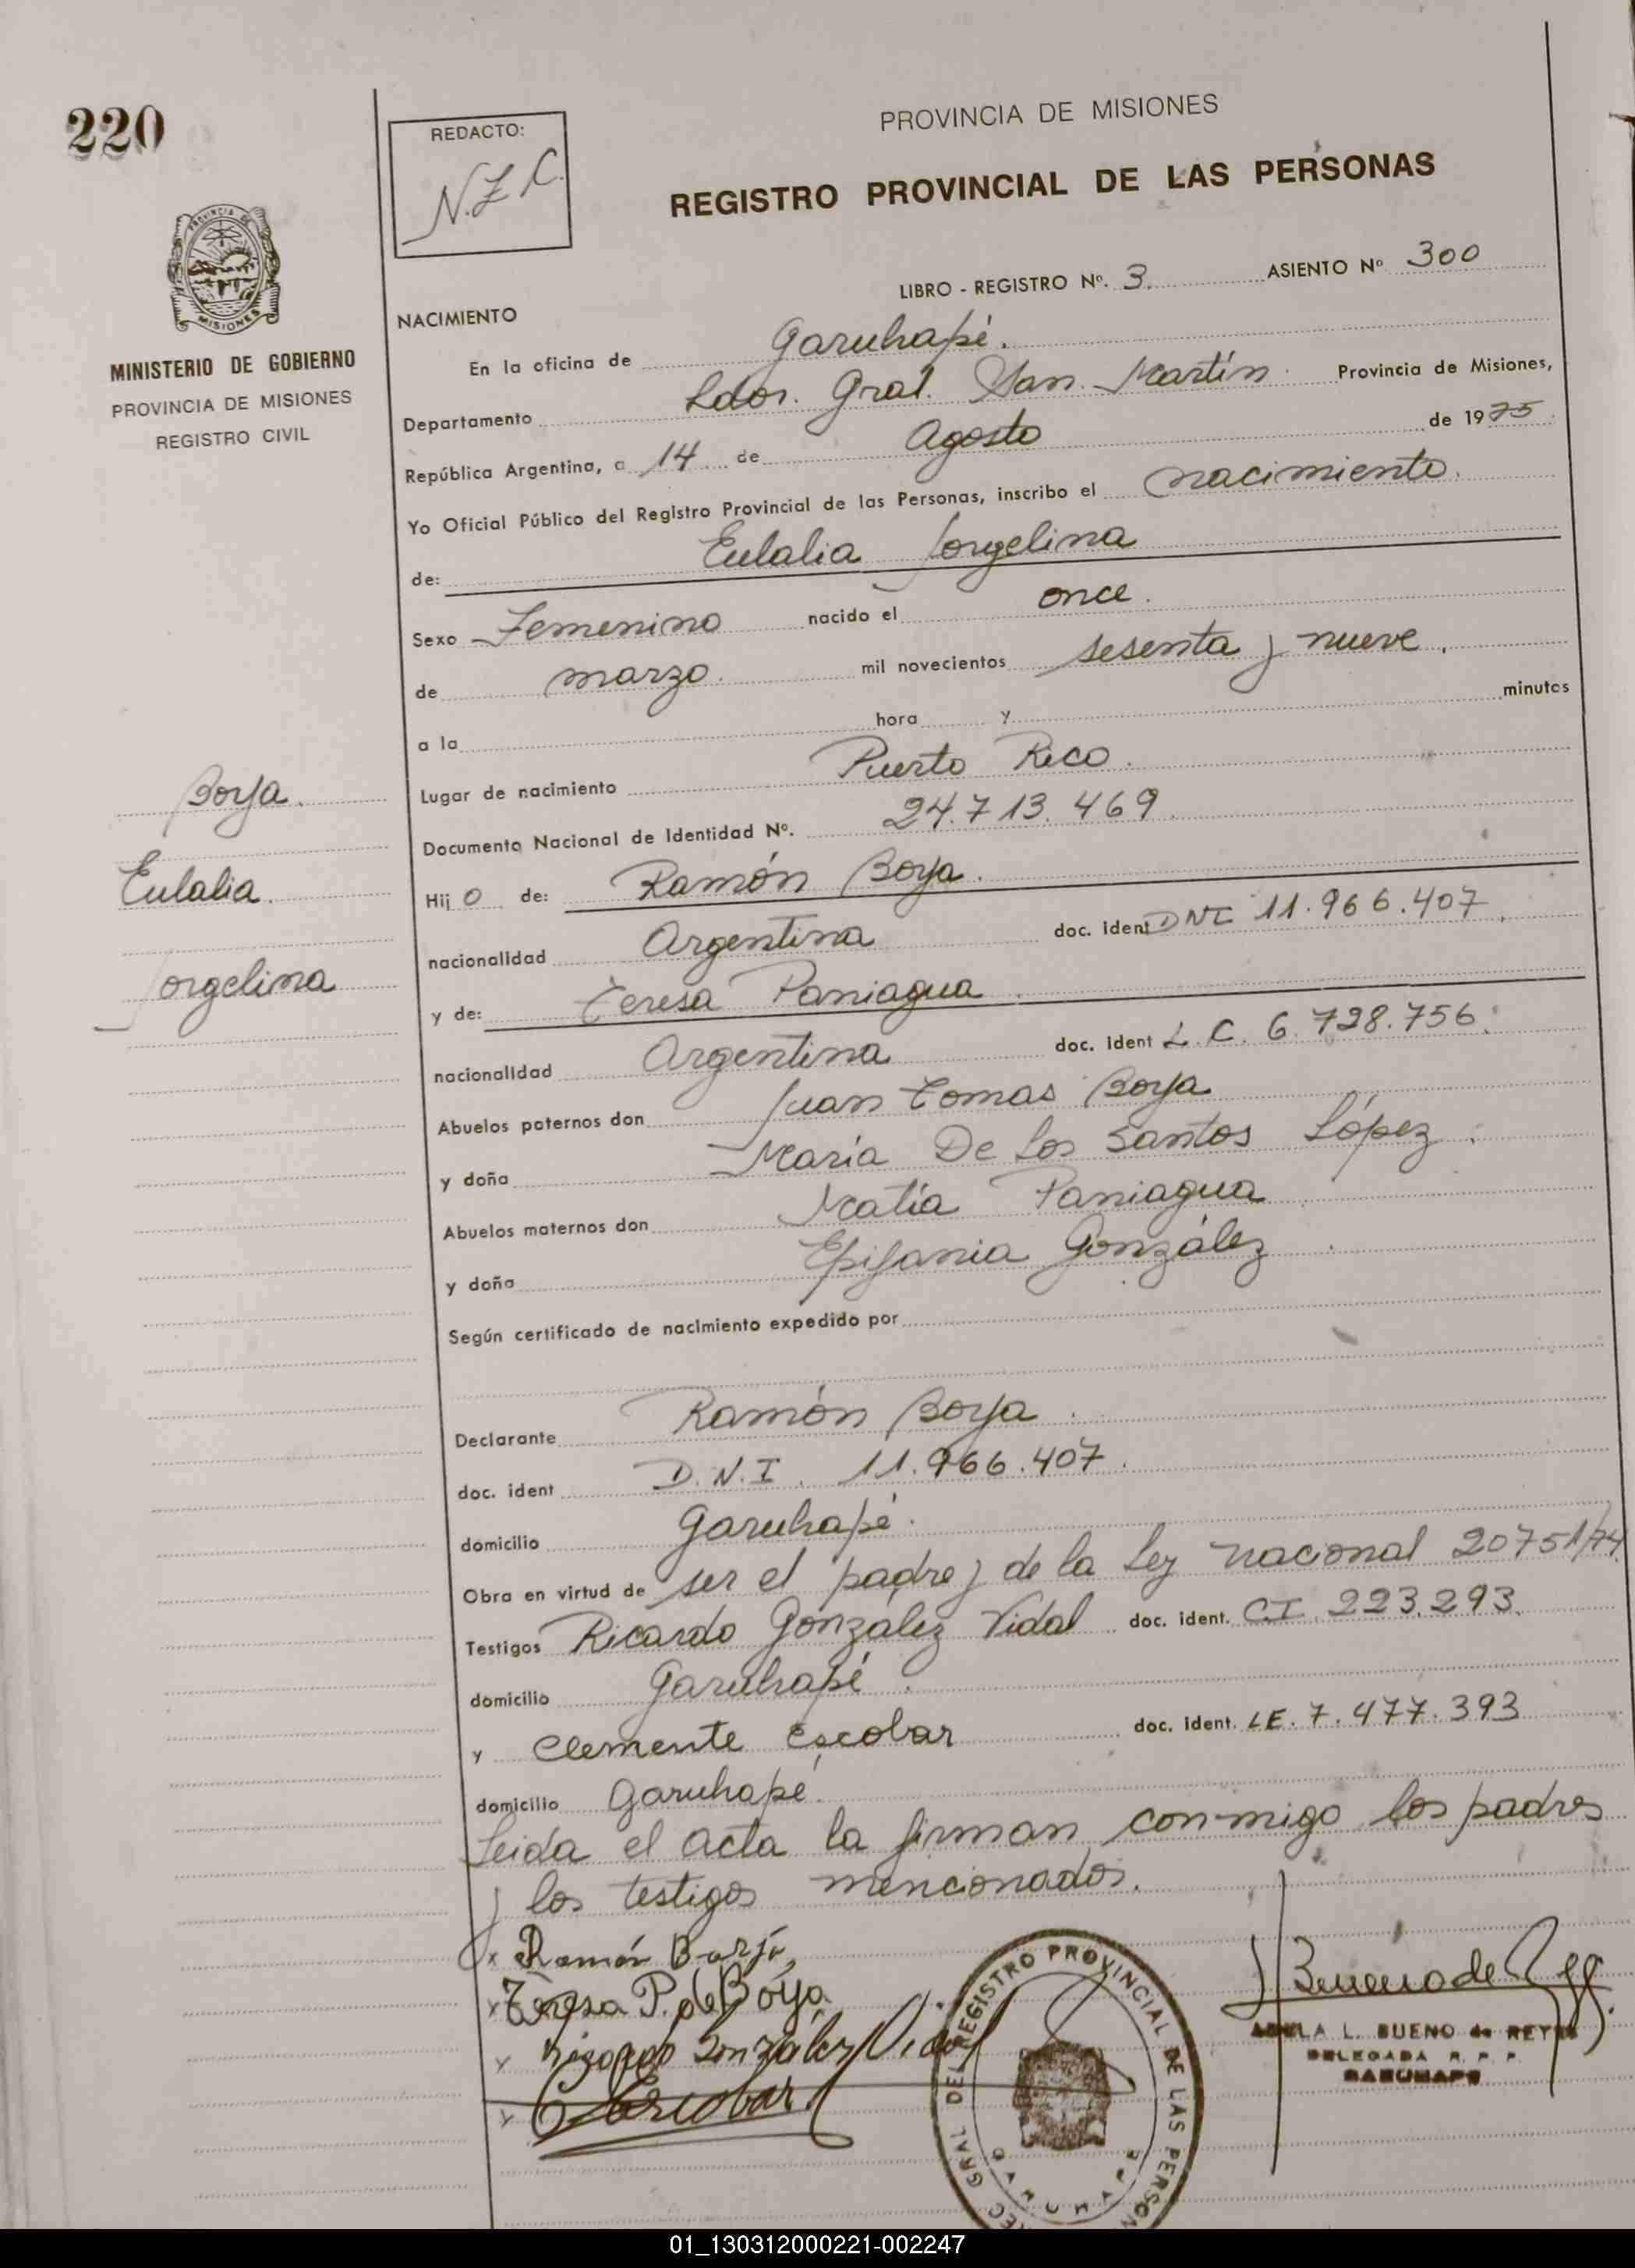 220
REDACTO:
N.Z.C.
PROVINCIA DE MISIONES
REGISTRO PROVINCIAL DE LAS PERSONAS
PROVINCIA DE
MISIONES
MINISTERIO DE GOBIERNO
PROVINCIA DE MISIONES
REGISTRO CIVIL
LIBRO - REGISTRO Nº. 3. ASIENTO Nº 300
NACIMIENTO
En la oficina de Garuhapé.
Departamento Ldor. Gral. San Martín Provincia de Misiones,
República Argentina, a 14 de Agosto de 1975
Yo Oficial Público del Registro Provincial de las Personas, inscribo el nacimiento.
de: Eulalia Jorgelina
Sexo Femenino nacido el once.
de marzo. mil novecientos sesenta y nueve.
a la hora y minutos
Lugar de nacimiento Puerto Rico.
Documento Nacional de Identidad Nº. 24.713.469
Boya.
Eulalia.
Jorgelina
Hij o de: Ramón Boya.
nacionalidad Argentina doc. ident DNI 11.966.407
y de: Teresa Paniagua
nacionalidad Argentina doc. ident L.C. 6.728.756.
Abuelos paternos don Juan Tomas Boya
y doña María De Los Santos López.
Abuelos maternos don Matía Paniagua
y doña Epifania González
Según certificado de nacimiento expedido por
Declarante Ramón Boya
doc. ident D.N.I. 11.966.407.
domicilio Garuhapé.
Obra en virtud de ser el padre y de la Ley Nacional 20751/74
Testigos Ricardo González Vidal doc. ident. C.I. 223.293.
domicilio Garuhapé.
y Clemente Escobar doc. ident. LE. 7.477.393
domicilio Garuhapé.
Leida el acta la firman conmigo los padres
y los testigos mencionados.
x Ramón Borja
x Teresa P. de Boya
x Rizardo González Vidal
x C Escobar
REGISTRO PROVINCIAL DE LAS
GARUHAPE
ADELA L. BUENO de REYES
DELEGADA R. P. P.
GARUHAPE
01_130312000221-002247